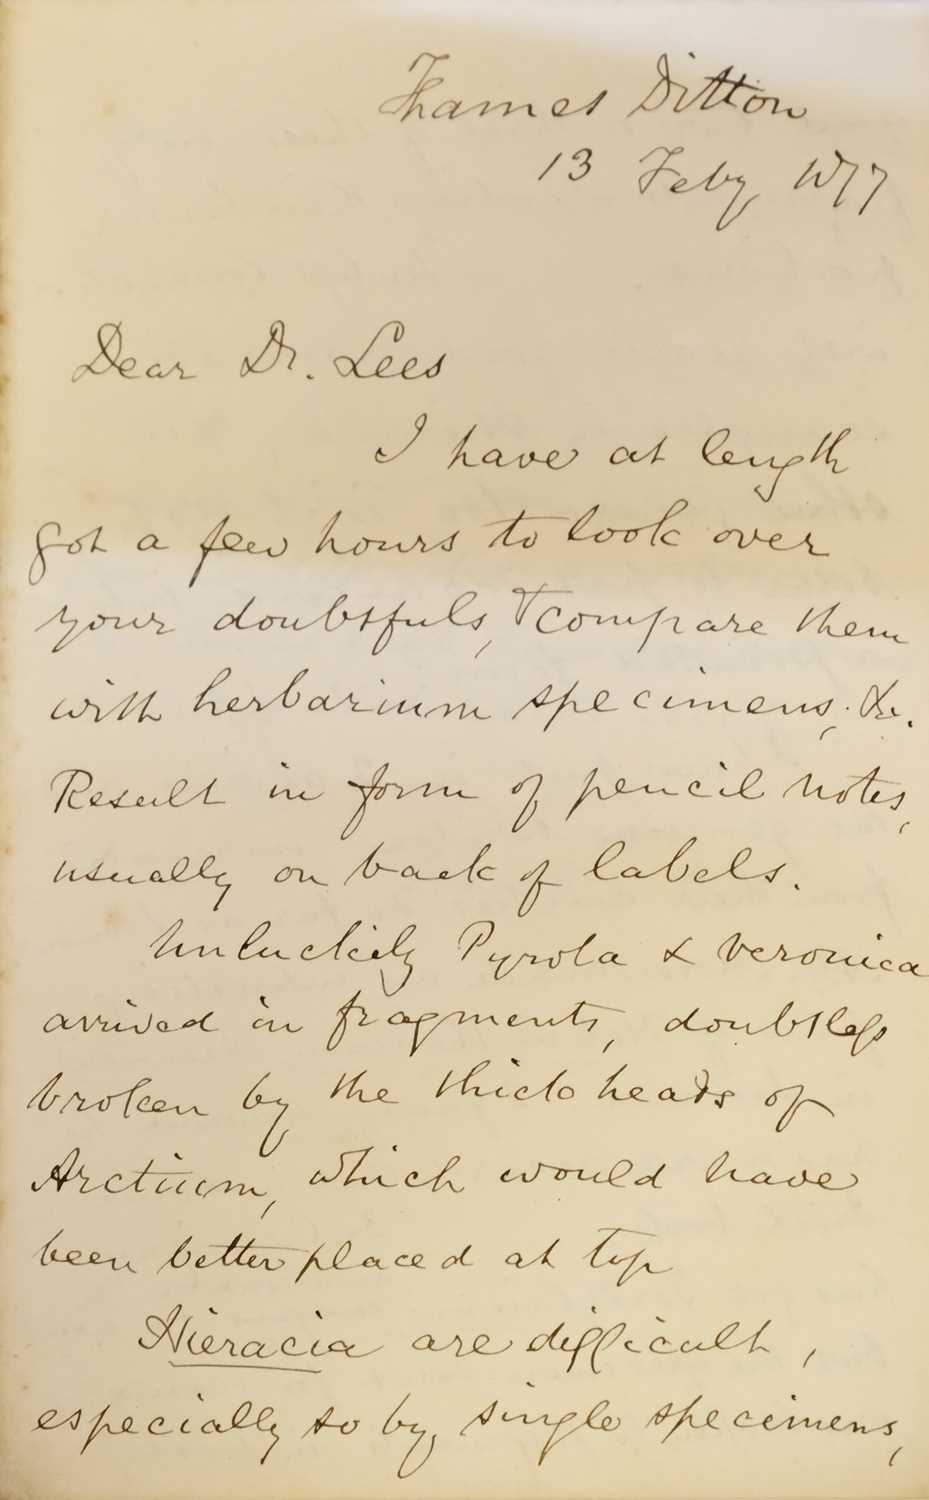 Thames Ditton
13 Feby, 1877
Dear Dr. Lees
I have at length
got a few hours to look over
your doubtfuls, & compare them
with herbarium specimens, &c.
Result in form of pencil notes,
usually on back of labels.
Unluckily Pyrola & Veronica
arrived in fragments, doubtless
broken by the thick heads of
Arctium, which would have
been better placed at top
Hieracia are difficult,
especially so by single specimens,